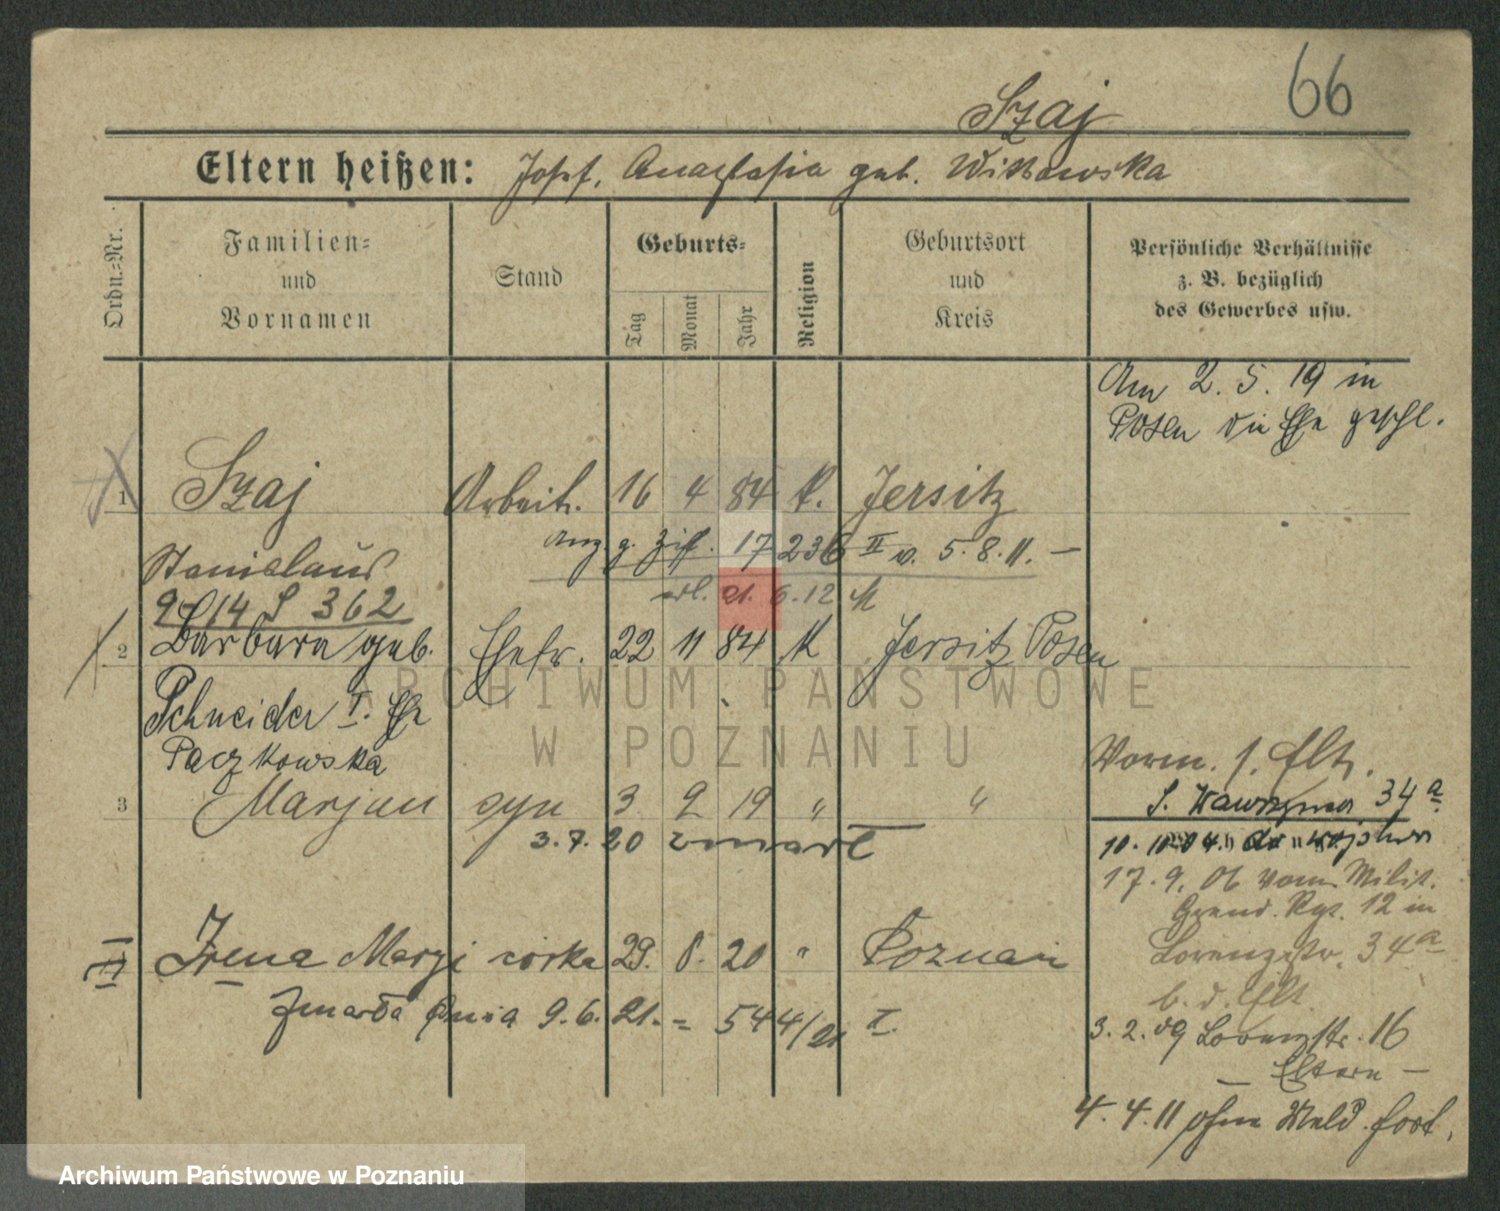 66
Szaj
Eltern heißen: Josef, Anastasia geb. Witkowska
Ordn.=Nr.
Familien=
und
Vornamen
Stand
Geburts=
Tag
Monat
Jahr
Religion
Geburtsort
und
Kreis
Persönliche Verhältnisse
z. B. bezüglich
des Gewerbes usw.
Am 2. 5. 19 in
Posen die Ehe geschl.
1 Szaj Arbeit. 16 4 84 k. Jersitz
Anz. g. Ziff. 17 236 II v. 5. 8. 11. —
Stanislaus
erl. 21. 6. 12
9/14 S 362
2 Barbara geb. Ehefr. 22 11 84 k Jersitz Posen
Schneider I. Ehe
Paczkowska
3 Marjan syn 3 2 19 " "
3. 7. 20 zmarł
Vorm. s. Elt.
S. Wawrzyna 34a
10. 10 04 do wojska
17. 9. 06 vom Milit.
Grend. Rgt. 12 in
Lorenzstr. 34a
b. d. Elt
3. 2. 09 Lorenzstr. 16
Eltern —
4. 4. 11 ohne Meld. fort.
II Irena Marji córka 29. 8. 20 " Poznań
Zmarła dnia 9. 6. 21. = 544/21 I.
ARCHIWUM PAŃSTWOWE
W POZNANIU
Archiwum Państwowe w Poznaniu